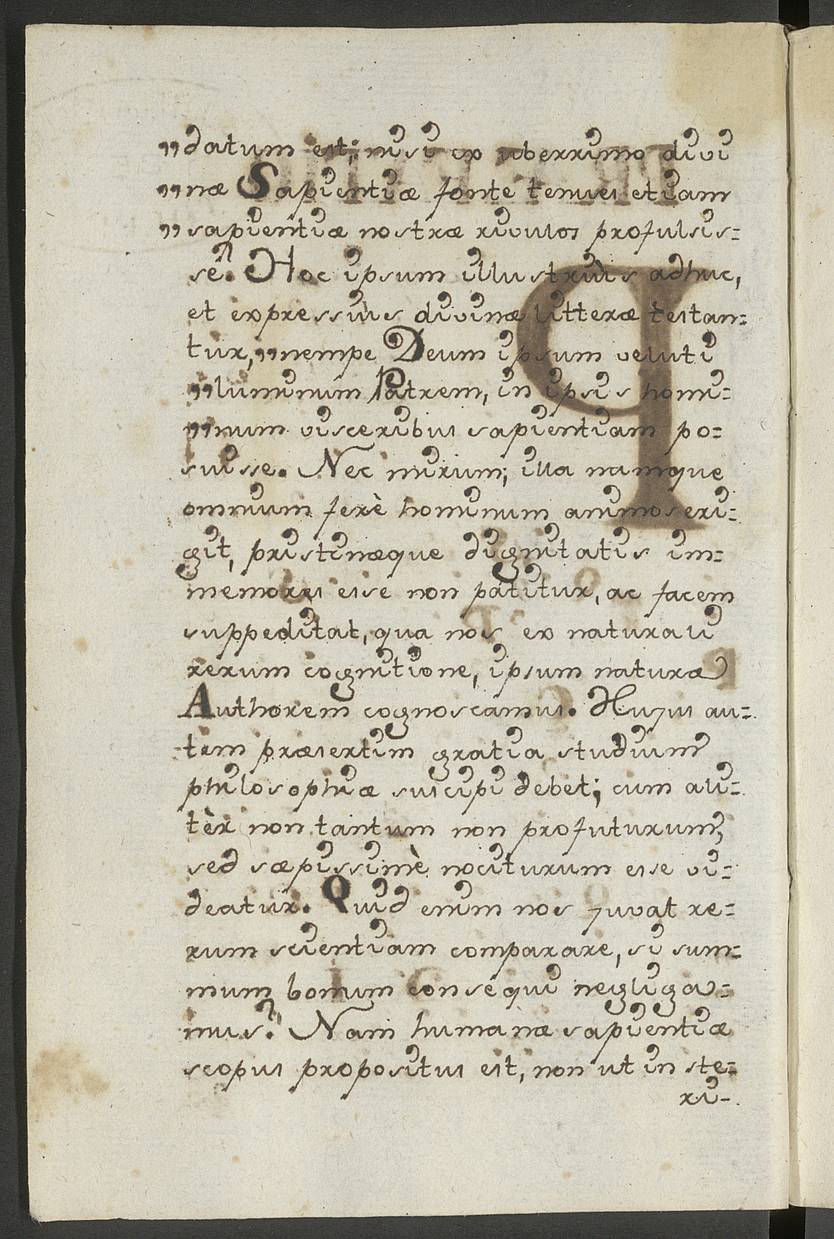 „datum est; nisi ex uberrimo divi
„næ Sapientiæ fonte tenues etiam
„sapientiæ nostræ rivulos profulsis=
se? Hoc ipsum illustriùs adhuc,
et expressiùs divinæ litteræ testan=
tur, „nempe Deum ipsum veluti
„luminum Patrem, in ipsis homi=
„num visceribus sapientiam po=
suisse. Nec mirum; illa namque
omnium ferè hominum animos eri=
git, pristinæque dignitatis im=
memores esse non patitur, ac facem
suppeditat, qua nos ex naturali
rerum cognitione, ipsum naturæ
Authorem cognoscamus. Hujus au=
tem præsertim gratia studium
philosophiæ suscipi debet; cum ali=
tèr non tantum non profuturum,
sed sæpissimè nociturum esse vi=
deatur. Quid enim nos juvat re=
rum scientiam comparare, si sum=
mum bonum consequi negliga=
mus? Nam humanæ sapientiæ
scopus propositus est, non ut in ste=
ri-